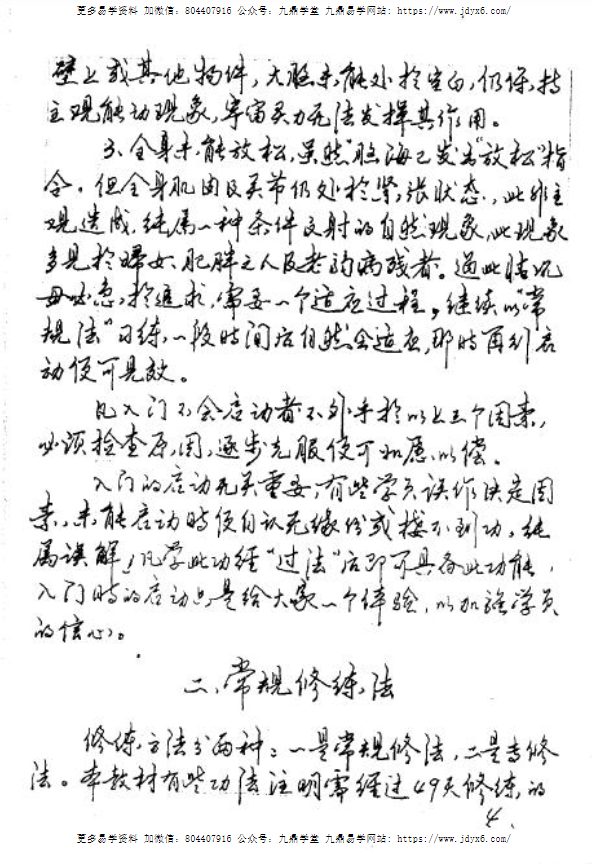 更多易学资料 加微信：804407916 公众号：九鼎学堂 九鼎易学网站：https://www.jdyx6.com/
壁上或其他物件，大脑未能处于空白，仍保持
主观能动现象，宇宙灵力无法发挥其作用。
3、全身未能放松，虽然“脑海已发出”放松”指
令。但全身肌肉及关节仍处于紧张状态，此非主
观造成，纯属一种条件反射的自然现象，此现象
多见于妇女、肥胖之人及老弱病残者。遇此情况
毋必急于追求，需要一个适应过程。继续以“常
规法”习练，一段时间后自然会适应，那时再行启
动便可见效。
凡入门不会启动者不外乎于以上三个因素，
必须检查原因，逐步克服便可如愿以偿。
入门的启动无关重要，有些学员误作决定因
素，未能启动时便自认无缘份或接不到功，纯
属误解，凡学此功经“过法”后即可具备此功能，
入门时的启动只是给大家一个体验，以加强学员
的信心。
二、常规修练法
修练方法分两种：一是常规修法，二是专修
法。本教材有些功法注明需经过49天修练的
4.
更多易学资料 加微信：804407916 公众号：九鼎学堂 九鼎易学网站：https://www.jdyx6.com/